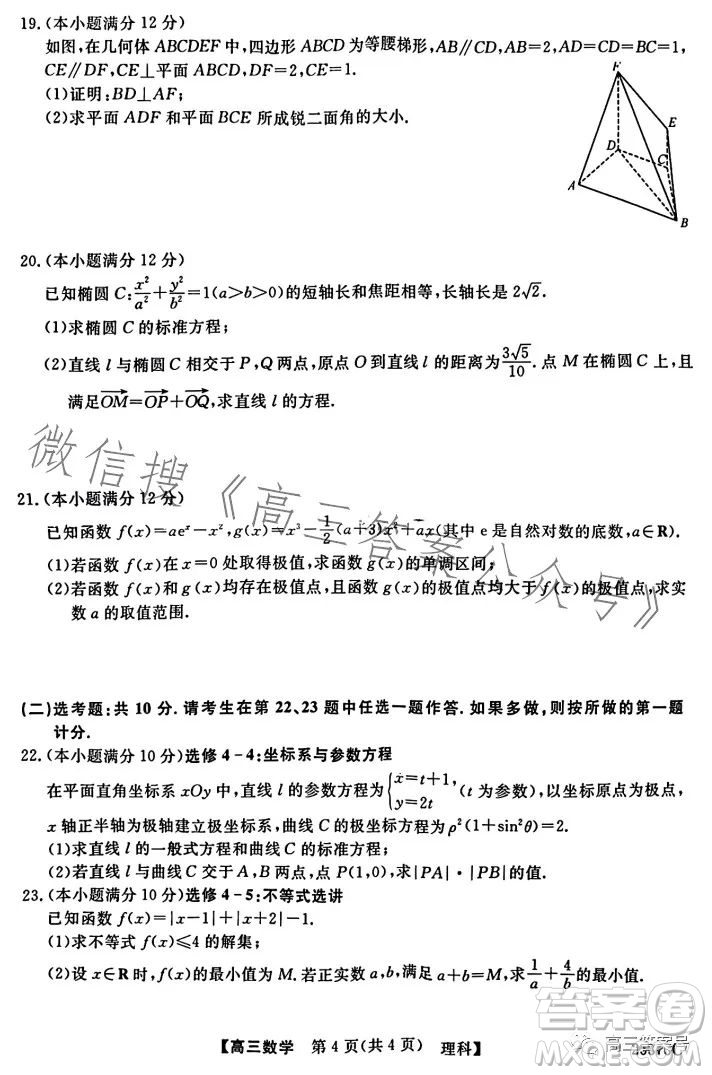 19.(本小题满分 12 分)
如图,在几何体 ABCDEF 中,四边形 ABCD 为等腰梯形,AB∥CD,AB=2,AD=CD=BC=1,
CE∥DF,CE⊥平面 ABCD,DF=2,CE=1.
(1)证明:BD⊥AF;
(2)求平面 ADF 和平面 BCE 所成锐二面角的大小.
F
E
D
C
A
B
20.(本小题满分 12 分)
已知椭圆 C:x²/a²+y²/b²=1(a>b>0)的短轴长和焦距相等,长轴长是 2√2.
(1)求椭圆 C 的标准方程;
(2)直线 l 与椭圆 C 相交于 P,Q 两点,原点 O 到直线 l 的距离为 3√5/10.点 M 在椭圆 C 上,且
满足OM→=OP→+OQ→,求直线 l 的方程.
微信搜《高三答案公众号》
21.(本小题满分 12 分)
已知函数 f(x)=aeˣ−x²,g(x)=x³−1/2(a+3)x²+ax(其中 e 是自然对数的底数,a∈R).
(1)若函数 f(x)在 x=0 处取得极值,求函数 g(x)的单调区间;
(2)若函数 f(x)和 g(x)均存在极值点,且函数 g(x)的极值点均大于 f(x)的极值点,求实
数 a 的取值范围.
(二)选考题:共 10 分.请考生在第 22、23 题中任选一题作答.如果多做,则按所做的第一题
计分.
22.(本小题满分 10 分)选修 4-4:坐标系与参数方程
在平面直角坐标系 xOy 中,直线 l 的参数方程为{x=t+1, y=2t (t 为参数),以坐标原点为极点,
x 轴正半轴为极轴建立极坐标系,曲线 C 的极坐标方程为 ρ²(1+sin²θ)=2.
(1)求直线 l 的一般式方程和曲线 C 的直角坐标方程;
(2)若直线 l 与曲线 C 交于 A,B 两点,点 P(1,0),求|PA|·|PB|的值.
23.(本小题满分 10 分)选修 4-5:不等式选讲
已知函数 f(x)=|x−1|+|x+2|−1.
(1)求不等式 f(x)≤4 的解集;
(2)设 x∈R 时,f(x)的最小值为 M.若正实数 a,b,满足 a+b=M,求1/a+4/b的最小值.
【高三数学 第 4 页(共 4 页) 理科】
高三答案号
答案圈
MXQE.COM